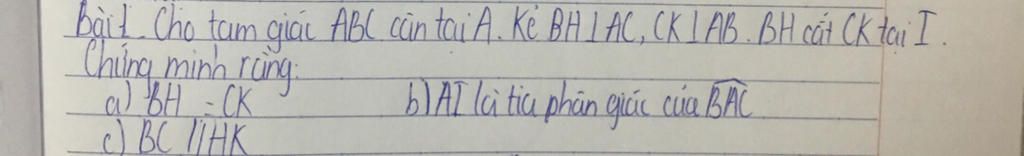 Bài 1. Cho tam giác ABC cân tại A. Kẻ BH ⊥ AC, CK ⊥ AB. BH cắt CK tại I.
Chứng minh rằng:
a) BH = CK b) AI là tia phân giác của BAC
c) BC // HK